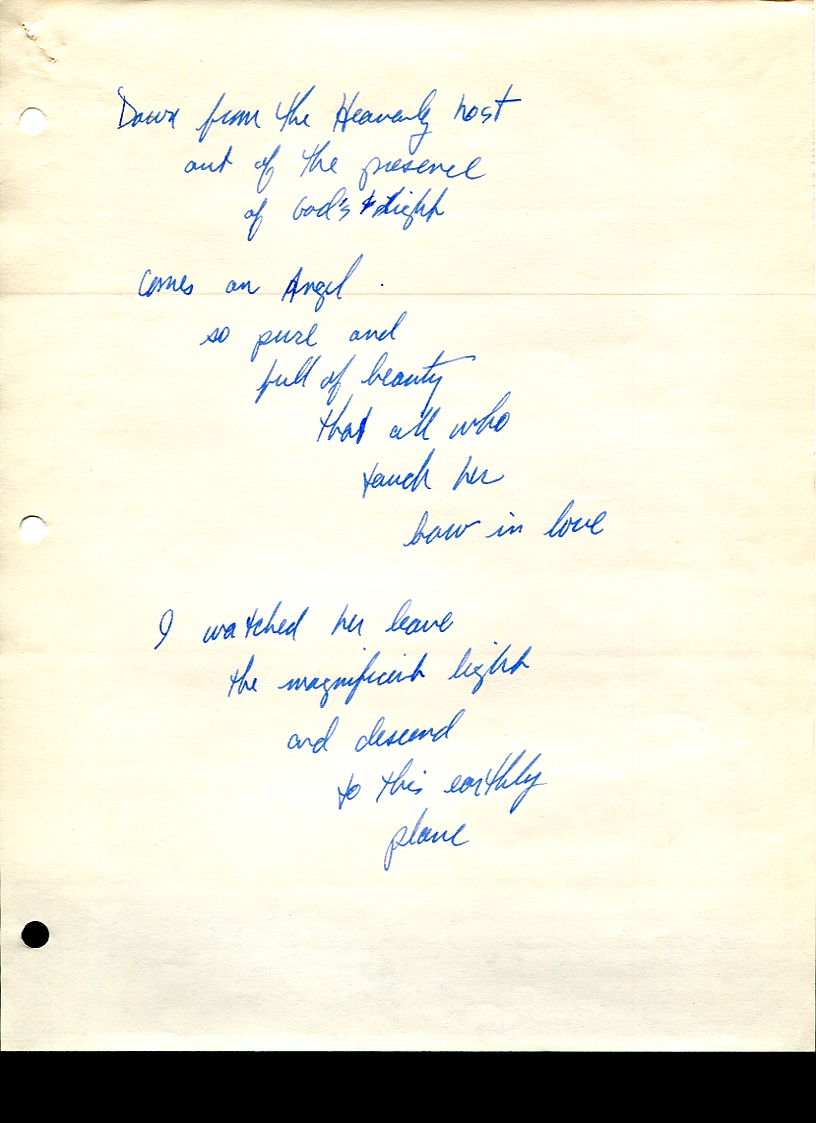 Down from the Heavenly host
out of the presence
of God's Light
Comes an Angel.
so pure and
full of beauty
that all who
touch her
bow in love
I watched her leave
the magnificent light
and descend
to this earthly
plane